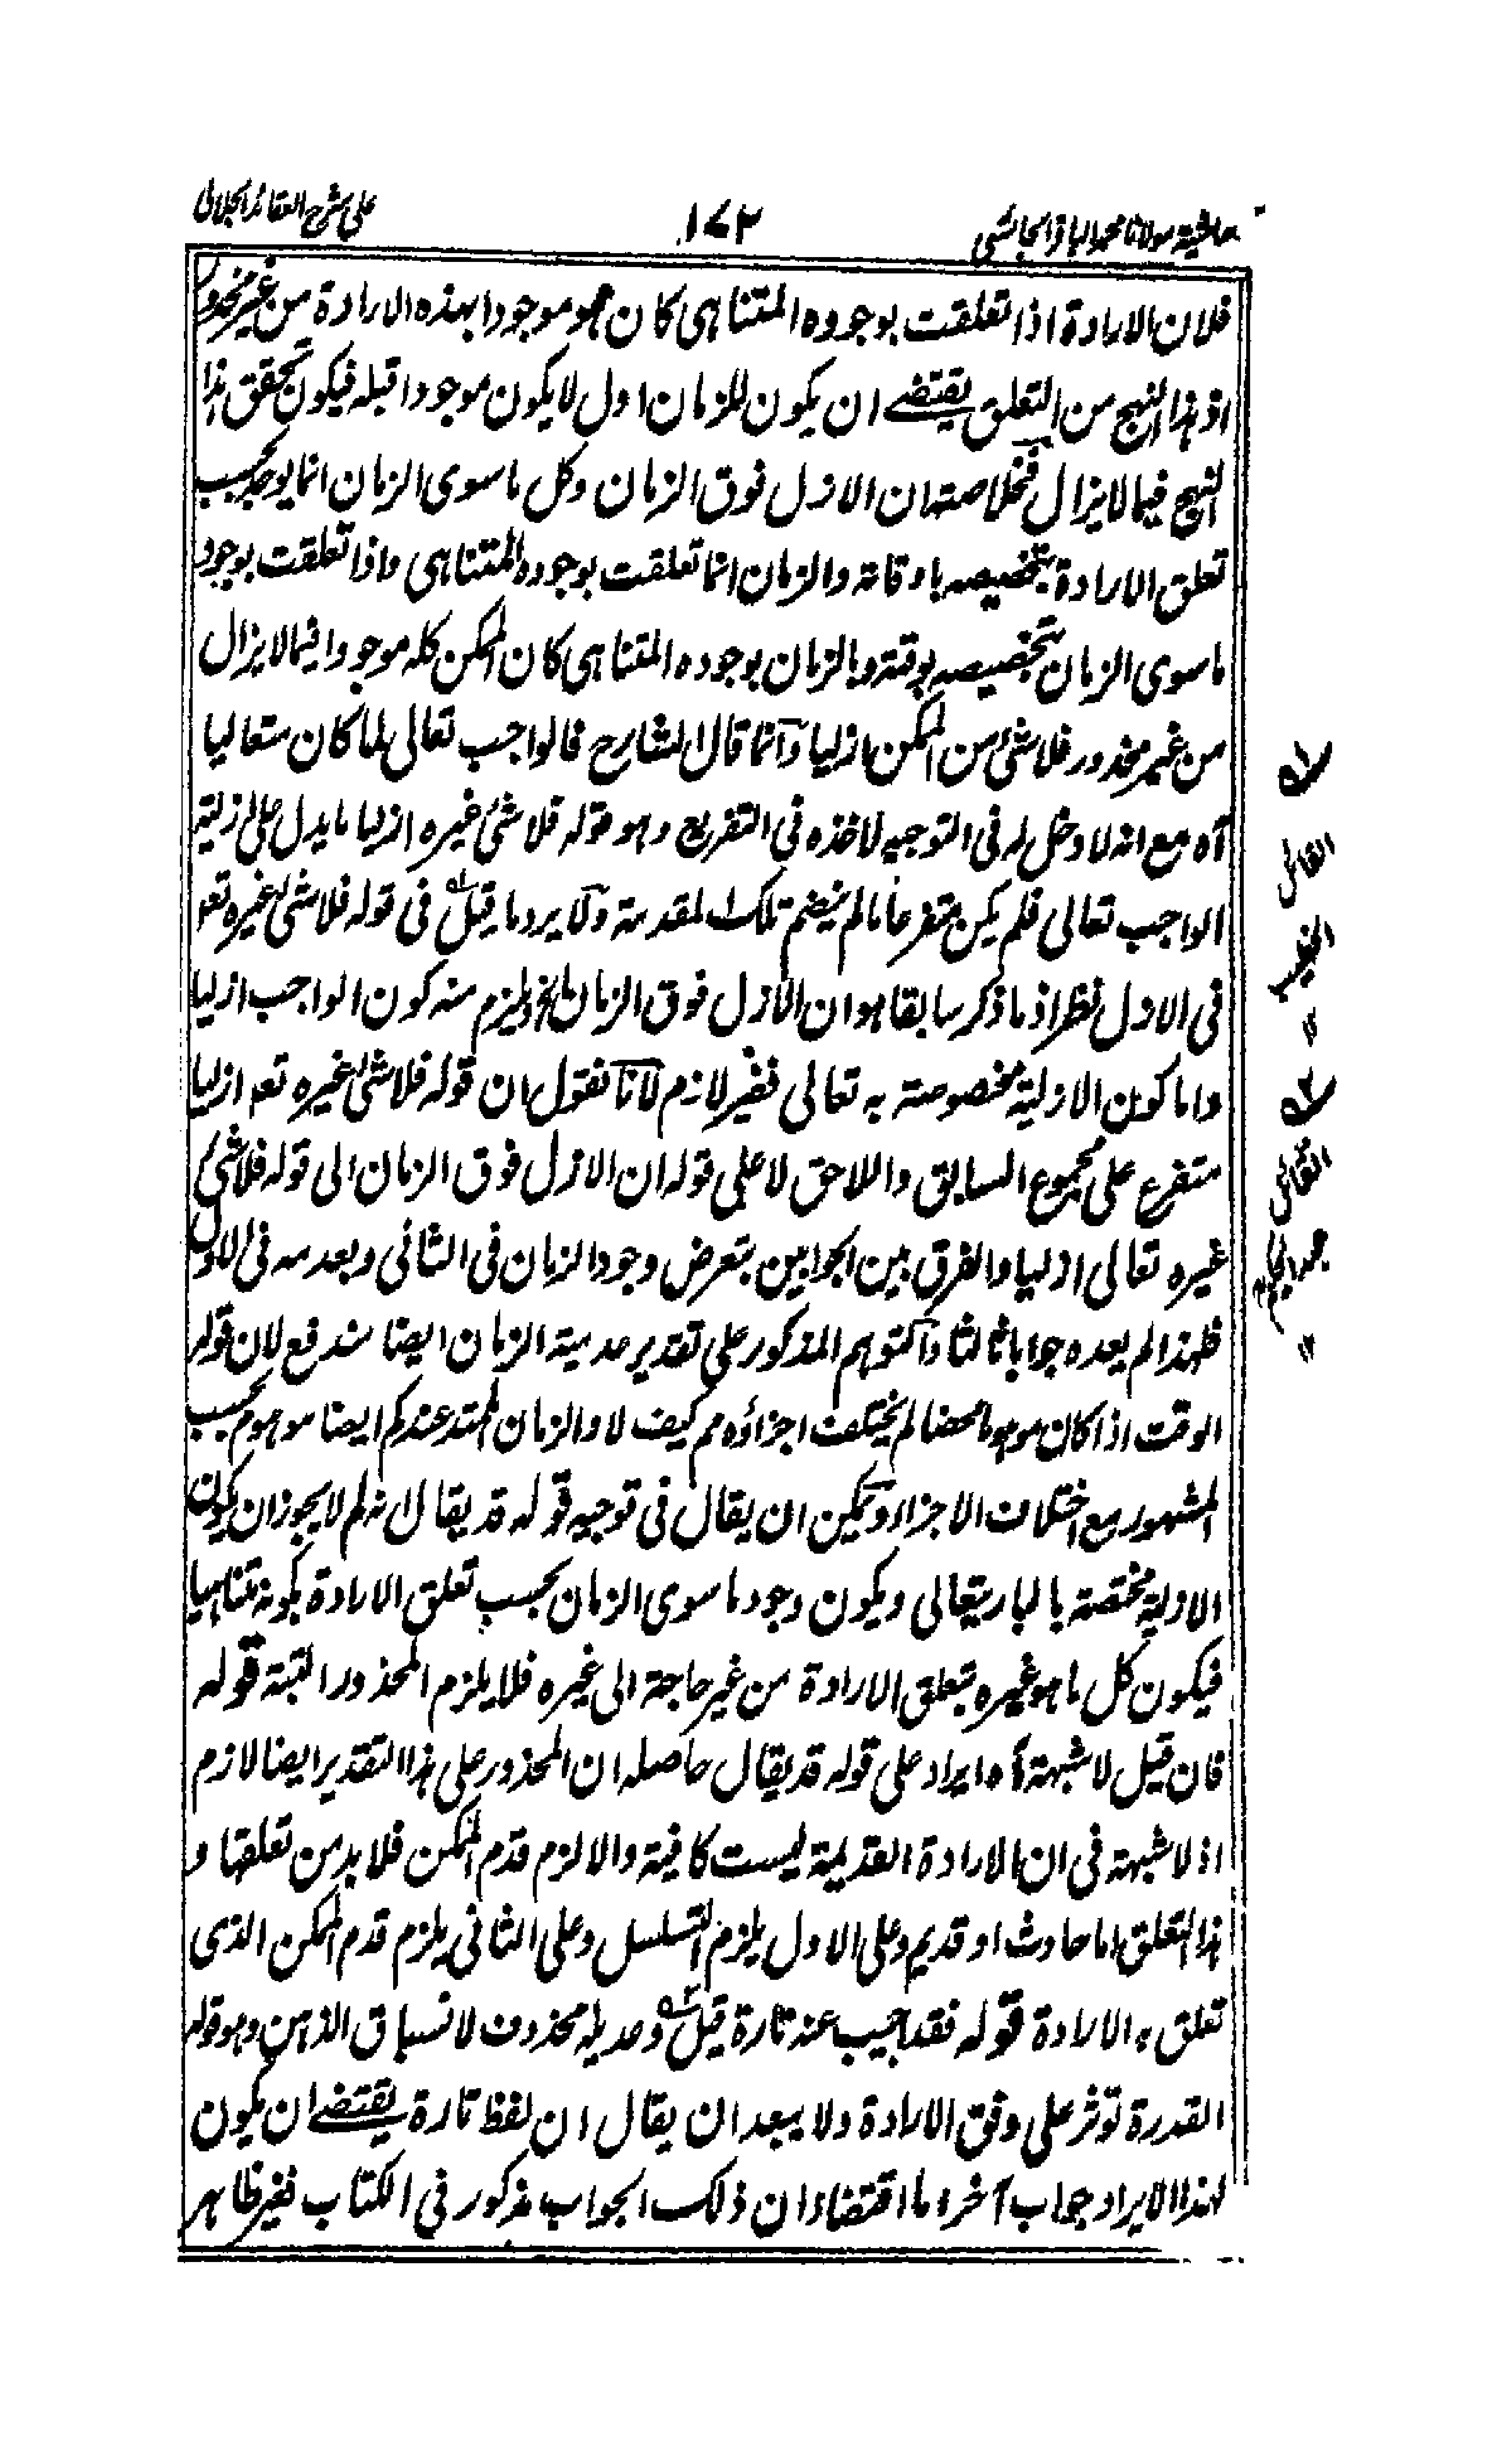 حاشية مولانا محمد الباقر الجائسي
١٧٢
على شرح العقائد الجلالي
فلان الارادة اذا تعلقت بوجوده المتناهى كان هو موجودا بهذه الارادة من غير محذور
اذ هذا النهج من التعلق يقتضى ان يكون للزمان اول لا يكون موجودا قبله فيكون تحقق هذا
النهج فيما لا يزال فخلاصته ان الازل فوق الزمان وكل ما سوى الزمان انما يوجد بحسب
تعلق الارادة بتخصيصه باوقاته والزمان انما تعلقت بوجوده المتناهى واذا تعلقت بوجود
ما سوى الزمان بتخصيصه بوقته وبالزمان بوجوده المتناهى كان الممكن كله موجودا فيما لا يزال
من غير محذور فلا شئ من الممكن ازليا وانما قال الشارح فالواجب تعالى لما كان متعاليا
آه مع انه لا دخل له فى التوجيه لاخذه فى التفريع وهو قوله فلا شئ غيره ازليا ما يدل على ازلية
الواجب تعالى فلم يكن متفرعا ما لم ينضم تلك المقدمة ولا يرد ما قيل له فى قوله فلا شئ غيره تعه
فى الاول نظر اذ ما ذكر سابقا هو ان الازل فوق الزمان الخ ويلزم منه كون الواجب ازليا
واما كون الازلية مخصوصة به تعالى فغير لازم لانا نقول ان قوله فلا شئ غيره تعه ازليا
متفرع على مجموع السابق واللاحق لا على قوله ان الازل فوق الزمان الى قوله فلا شئ
غيره تعالى ازليا والفرق بين الجوابين بتعرض وجود الزمان فى الثانى وبعدمه فى الاول
فلهذا لم يعده جوابا ثالثا والتوهم المذكور على تقدير عدمية الزمان ايضا مندفع لان قوله
الوقت اذا كان موهوما محضا لم يختلف اجزاؤه مم كيف لا والزمان الممتد عندكم ايضا موهوم بحسب
المشهور مع اختلاف الاجزاء ويمكن ان يقال فى توجيه قوله قد يقال لانه لم لا يجوز ان يكون
الازلية مختصة بالبارى تعالى ويكون وجود ما سوى الزمان بحسب تعلق الارادة بكونه متناهيا
فيكون كل ما هو غيره بتعلق الارادة من غير حاجة الى غيره فلا يلزم المحذور البتة قوله
فان قيل لا شبهة آه ايراد على قوله قد يقال حاصله ان المحذور على هذا التقدير ايضا لازم
اذ لا شبهة فى ان الارادة القديمة ليست كافية والا لزم قدم الممكن فلا بد من تعلقها و
هذا التعلق اما حادث او قديم وعلى الاول يلزم التسلسل وعلى الثانى يلزم قدم الممكن الذى
تعلق به الارادة قوله فقد اجيب عنه تارة قيل له وعديله محذوف لانسباق الذهن وهو قوله
القدرة توثر على وفق الارادة ولا يبعد ان يقال ان لفظ تارة يقتضى ان يكون
لهذا الايراد جواب آخر اما اقتضاء ان ذلك الجواب مذكور فى الكتاب فغير ظاهر
له
القائل
"
له
القائل
"